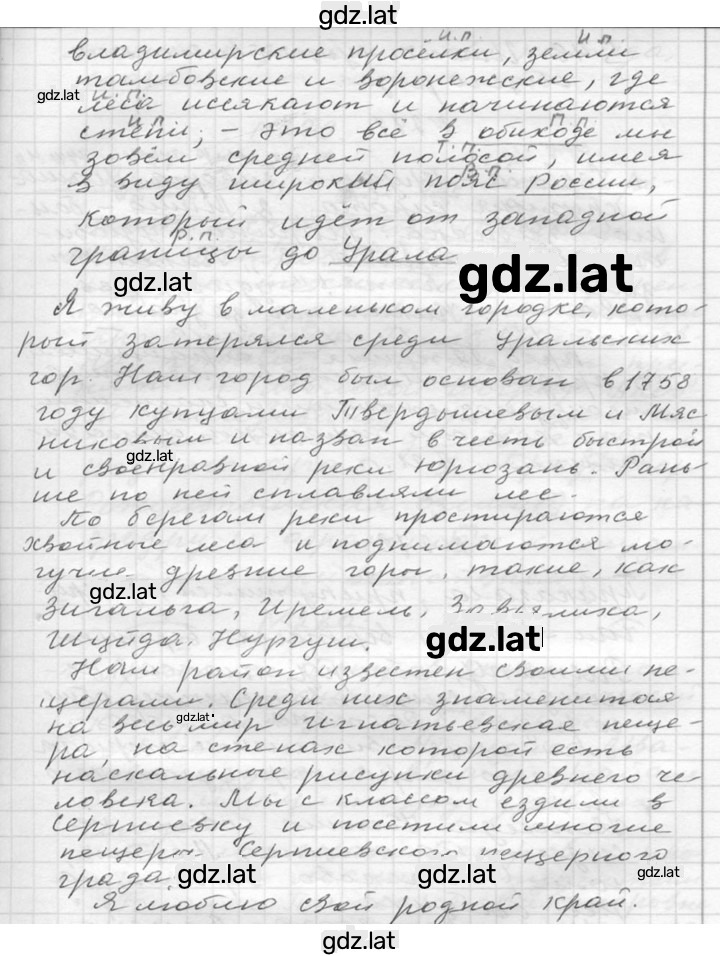 gdz.lat
и.п. и.п.
владимирские просёлки, земли
тамбовские и воронежские, где
gdz.lat
и.п.
леса иссякают и начинаются
и.п. п.п.
степи, – это всё в обиходе мы
т.п.
зовём средней полосой, имея
в.п.
в виду широкий пояс России,
который идёт от западной
р.п.
границы до Урала
gdz.lat
gdz.lat
Я живу в маленьком городке, кото-
рый затерялся среди Уральских
гор. Наш город был основан в 1758
году купцами Твердышевым и Мяс
никовым и назван в честь быстрой
и своенравной реки Юрюзань. Рань-
gdz.lat
ше по ней сплавляли лес.
По берегам реки простираются
хвойные леса и поднимаются мо-
гучие древние горы, такие, как
gdz.lat
Зигальга, Иремель,
Шуйда, Нургуш.
gdz.lat
Наш район известен своими пе-
щерами. Среди них знаменитая
gdz.lat
на весь мир Игнатьевская пеще-
ра, на стенах которой есть
наскальные рисунки древнего че-
ловека. Мы с классом ездили в
Серпиевку и посетили многие
пещеры Серпиевского пещерного
града.
gdz.lat
gdz.lat
gdz.lat
Я люблю свой родной край.
gdz.lat